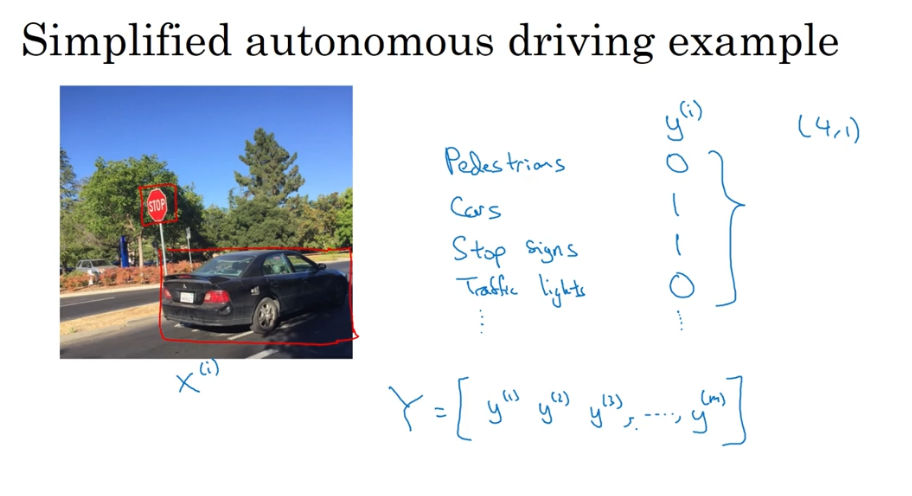 Simplified autonomous driving example
y^(i) (4,1)
STOP
Pedestrians 0
Cars 1
Stop signs 1
Traffic lights 0
⋮ ⋮
x^(i)
Y = [ y^(1) y^(2) y^(3), ...., y^(m) ]